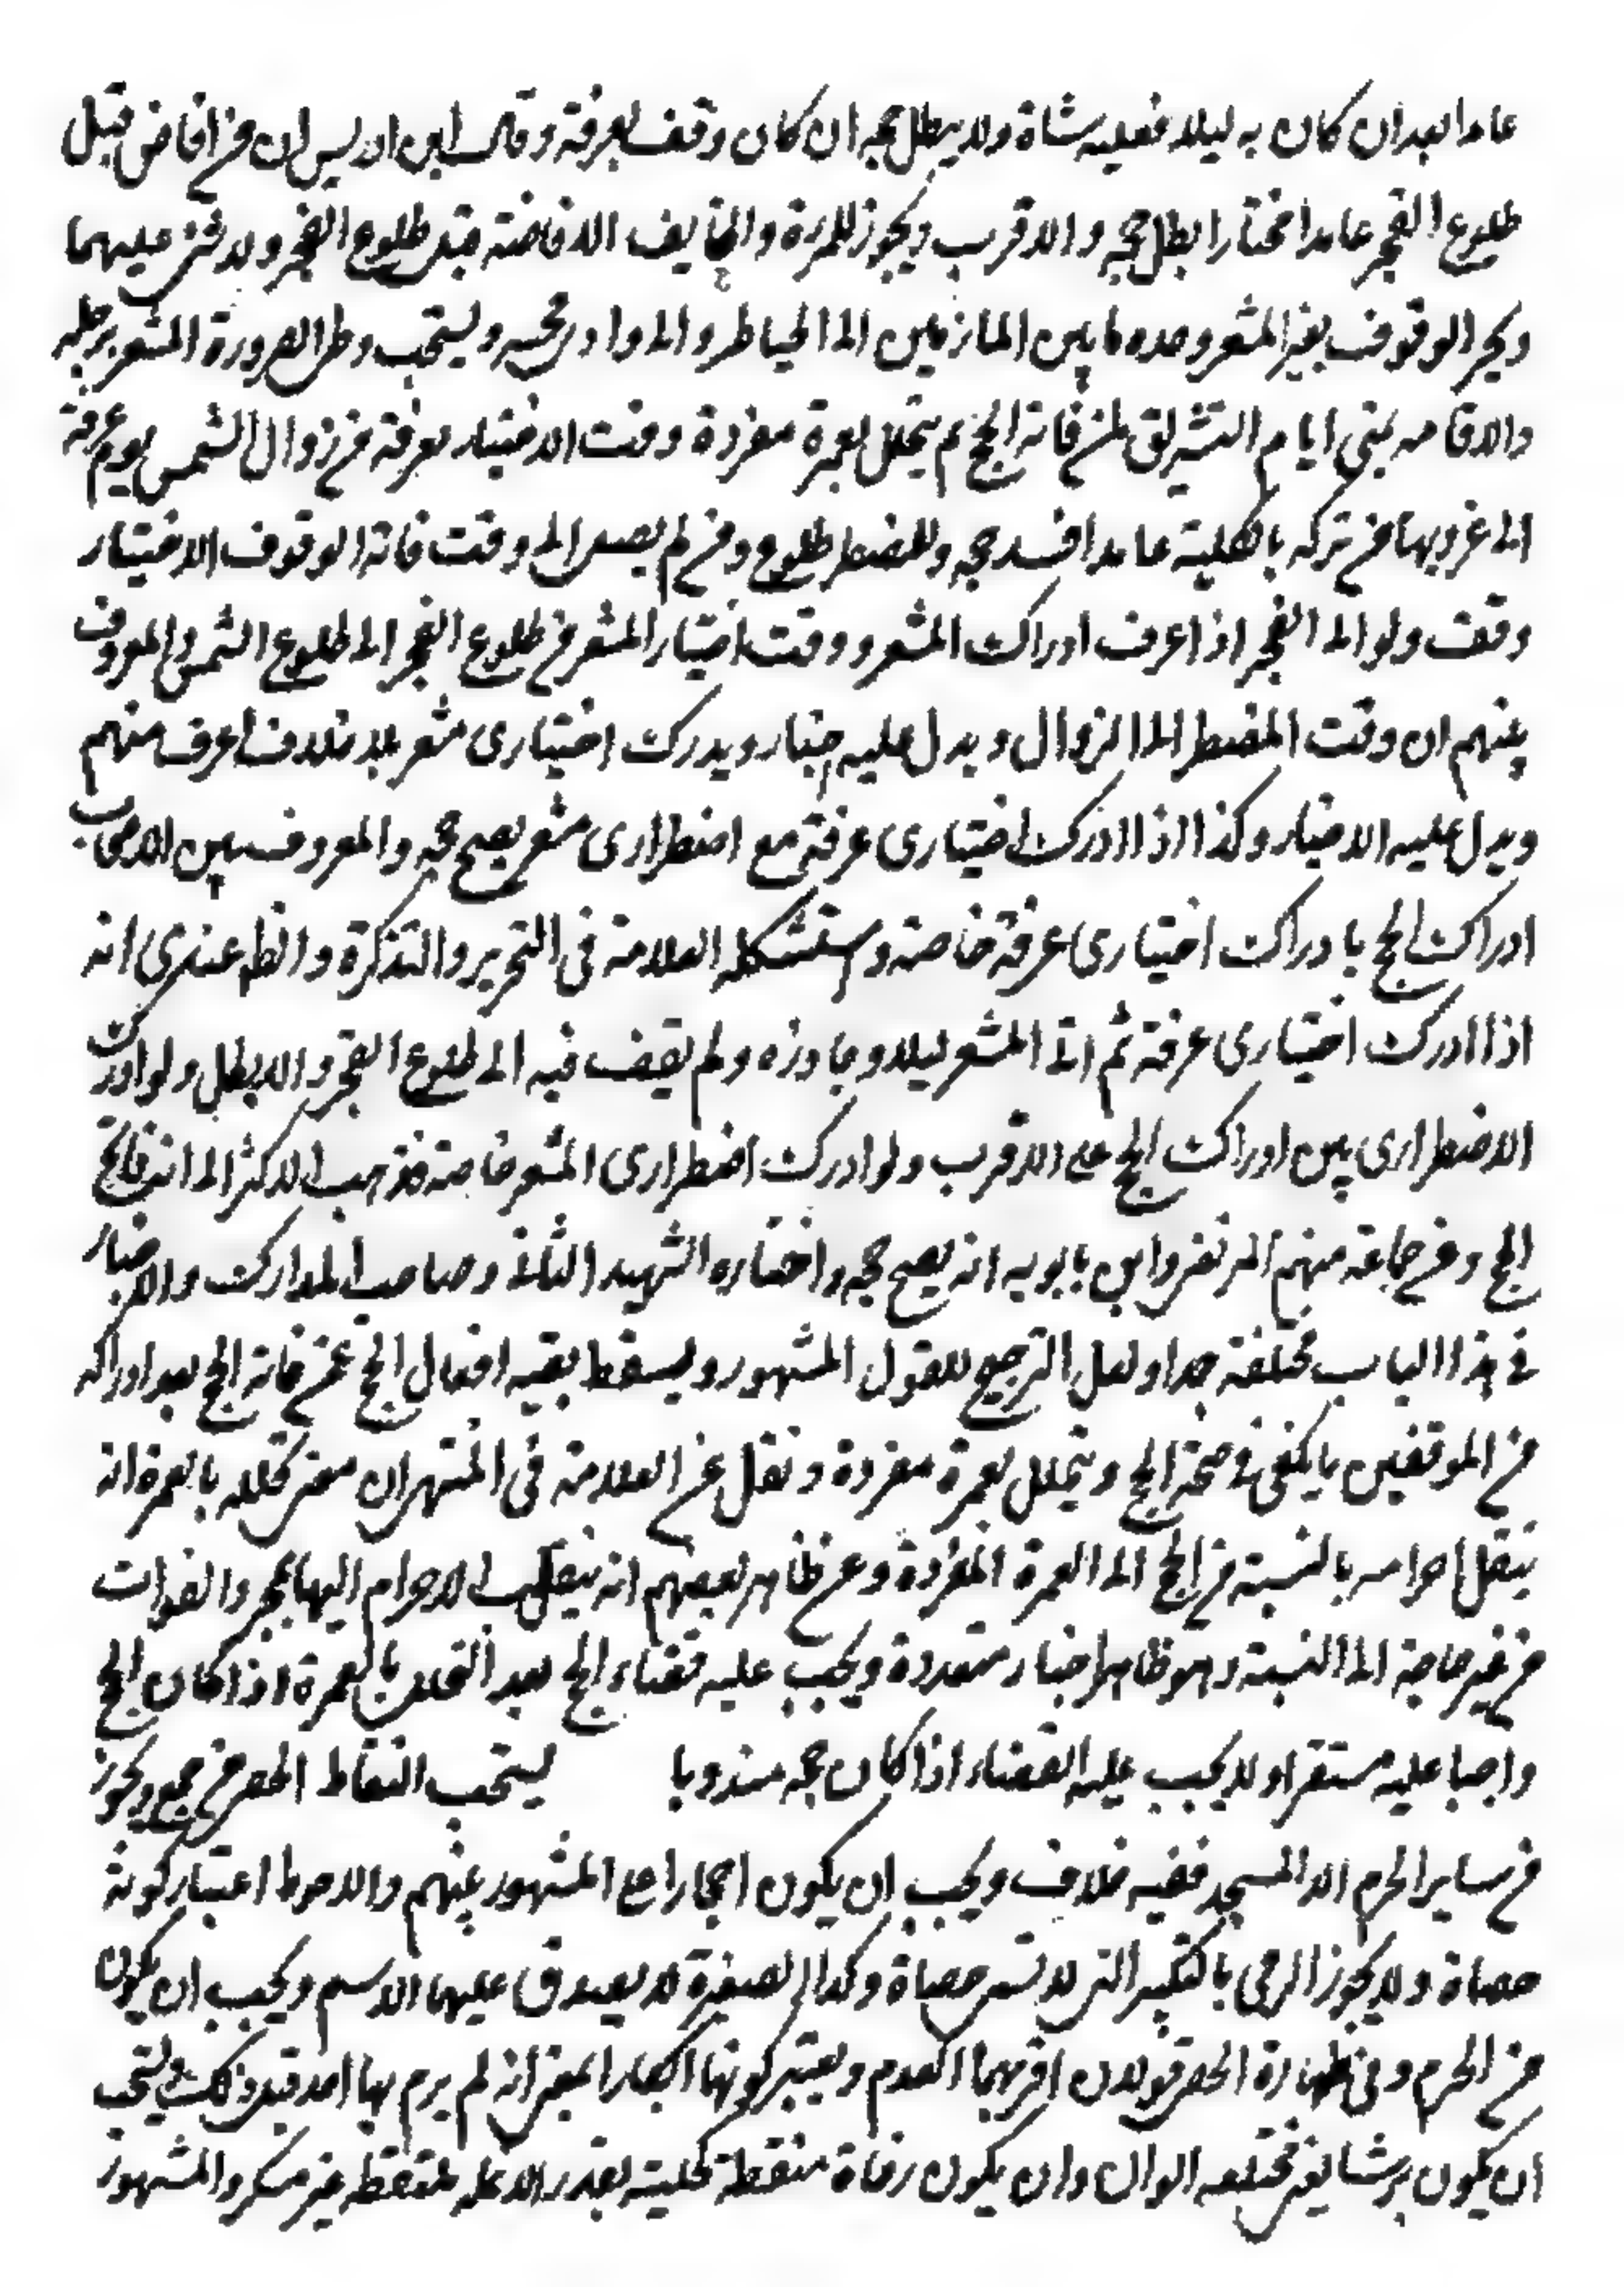 عامدا بعد ان كان به ليلا فعليه شاة ولا يبطل حجه ان كان وقف بعرفة وقال ابن ادريس ان من افاض قبل
طلوع الفجر عامدا مختارا بطل حجه والاقرب ويجوز للمرءة والخايف الافاضة قبل طلوع الفجر ولا شئ عليهما
ويجز الوقوف بغير المشعر وحده ما بين المازمين الى الحياض والى وادى محسر ويستحب وطى الصرورة المشعر برجله
والاقامه بمنى ايام التشريق لمن فاته الحج ثم يتحلل بعمرة مفردة ووقت الاختيار بعرفة من زوال الشمس يوم عرفة
الى غروبها من تركه بالكلية عامدا افسد حجه وللمضطر طلوع ومن لم يصل الى وقت فاته الوقوف الاختيار
وقف ولو الى الفجر اذا عرف ادراك المشعر ووقت اختيار المشعر من طلوع الفجر الى طلوع الشمس والمعروف
بينهم ان وقت المضطر الى الزوال ويدل عليه اخبار ويدرك اختيارى مشعر بلا خلاف اعرف منهم
ويدل عليه الاخبار وكذا اذا ادرك اختيارى عرفة مع اضطرارى مشعر يصح حجه والمعروف بين الاصحاب
ادراك الحج بادراك اختيارى عرفة خاصة واستشكله العلامة فى التحرير والتذكرة والظ عندى انه
اذا ادرك اختيارى عرفة ثم اتى المشعر ليلا وجاوزه ولم يقف فيه الى طلوع الفجر والا بطل ولو ادرك
الاضطرارى بين ادراك الحج على الاقرب ولو ادرك اضطرارى المشعر خاصة فذهب الاكثر الى انه فاته
الحج وعن جماعة منهم المرتضى وابن بابويه انه يصح حجه واختاره الشهيد الثانى وصاحب المدارك والاخبار
فى هذا الباب مختلفة جدا ولعل الترجيح للقول المشهور ويسقط بقيه افعال الحج عمن فاته الحج بعد ادراكه
من الموقفين ما يكفى فى صحة الحج ويتحلل بعمرة مفردة ونقل عن العلامة فى المنتهى ان معنى تحلله بالعمرة انه
ينقل احرامه بالنسبة من الحج الى العمرة المفردة وعن ظاهر بعضهم انه ينقلب الاحرام اليها بمجرد الفوات
من غير حاجة الى النسبة وهو ظاهر اخبار متعددة ويجب عليه قضاء الحج بعد التحلل بالعمرة اذا كان الحج
واجبا عليه مستقرا ولا يجب عليه القضاء اذا كان حجه مندوبا يستحب التقاط الحصى من جمع ويجوز
من ساير الحرم الا المسجد ففيه خلاف ويجب ان يكون احجارا على المشهور بينهم والاحوط اعتبار كونه
حصاة ولا يجوز الرمى بالكبير التى لا تسمى حصاة وكذا الصغيرة لا يصدق عليها الاسم ويجب ان يكون
من الحرم وفى طهارة الحصى قولان اقربهما العدم ويعتبر كونها ابكارا بمعنى انه لم يرم بها احد قبل ذلك ويستحب
ان يكون برشا يعنى مختلفه الالوان وان يكون رخاة منقطة كحلية بقدر الانملة ملتقطة غير مكسر والمشهور